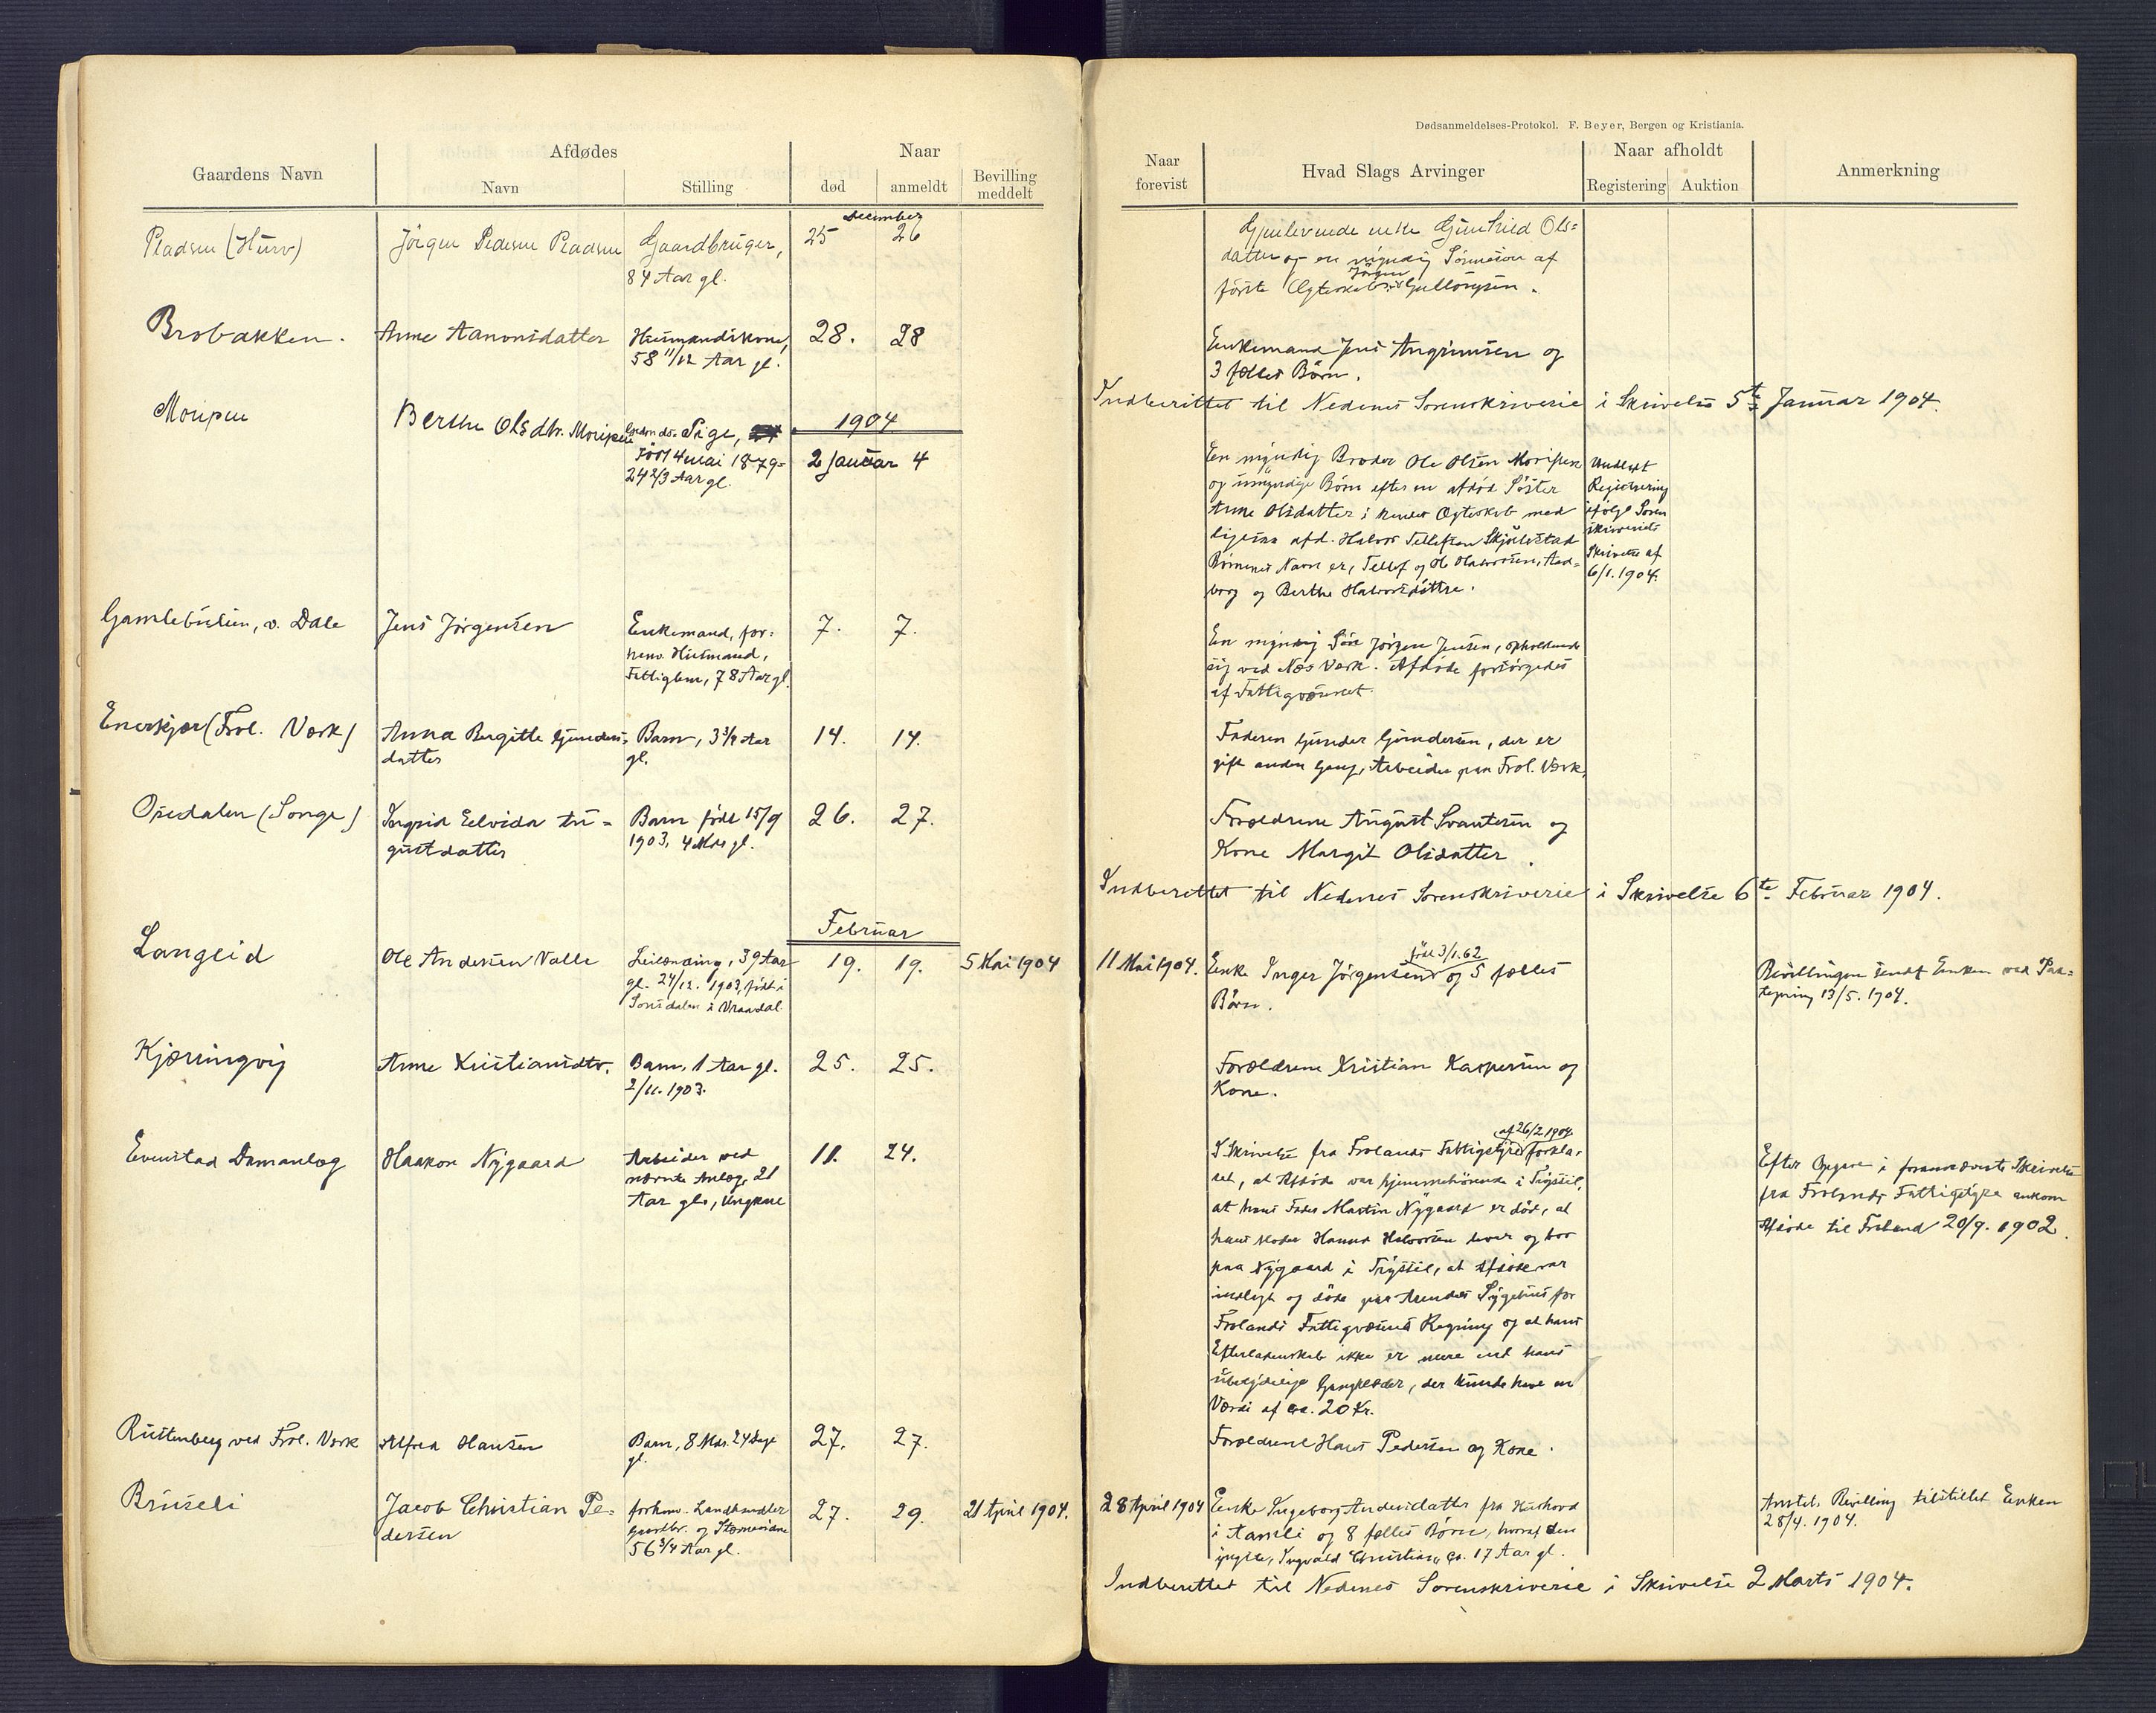 Dødsanmeldelses-Protokol. F. Beyer, Bergen og Kristiania.
Gaardens Navn
Afdødes
Navn
Stilling
Naar
død
anmeldt
Bevilling
meddelt
Naar
forevist
Hvad Slags Arvinger
Naar afholdt
Registering
Auktion
Anmerkning
Pladsen (Hurv)
Jørgen Pedersen Pladsen
Gaardbruger,
84 Aar gl.
december
25 26
Gjenlevende enke Gunhild Ols=
datter og en myndig Sønnesøn af
første Ægteskab: Jørgen Gullovsen.
Brobakken.
Anne Aanonsdatter
Husmandskone,
58 11/12 Aar gl.
28. 28
Enkemand Jens Angrimsen og
3 fælles Børn.
Indberittet til Nedenes Sorenskriverie i Skrivelse 5te Januar 1904.
Moripen
Berthe Olsdtr. Moripen
Pige,
født 4 mai 1879=
24 2/3 Aar gl.
1904
2 januar 4
En myndig Broder Ole Olsen Moripen
og umyndige Børn efter en afdød Søster
Anne Olsdatter i hendes Ægteskab med
ligesaa afd. Halvor Tellefsen Skjølestad
Børnenes Navn er, Tellef og Ole Halvorsen, Aad=
borg og Berthe Halvorsdøttre.
Undladt
Registrering
ifølge Soren
skriverens
Skrivelse af
6/1. 1904.
Gamlebuleien, v. Dale
Jens Jørgensen
Enkemand, for=
henv. Husmand,
Fattiglem, 78 Aar gl.
7. 7.
En myndig Søn Jørgen Jensen, opholdende
sig ved Næs Værk. Afdøde forsørgedes
af Fattigvæsenet.
Enerkjær (Frol. Værk)
Anna Birgitte Gunders=
datter
Barn, 3 3/4 Aar
gl.
14. 14.
Faderen Gunder Gundersen, der er
gift anden Gang, Arbeider paa Frol. Værk.
Osedalen (Songe)
Ingrid Elvida Au=
gustdatter
Barn født 15/9
1903, 4 Mdr gl.
26. 27.
Forældrene August Svantesen og
Kone Margit Olsdatter.
Indberettet til Nedenes Sorenskriverie i Skrivelse 6te Februar 1904.
Februar
Langeid
Ole Andersen Valle
Leilænding, 39 Aar
gl. 24/12. 1903, født i
Sonsdalen i Vraadal
19. 19.
5 Mai 1904
11 Mai 1904.
Enke Inger Jørgensen født 3/1.62 og 5 fælles
Børn.
Bevillingen sendt Enken ved Paa=
tegning 13/5. 1904.
Kjærringvig
Anne Kristiansdtr.
Barn, 1 Aar gl.
2/11. 1903.
25. 25.
Forældrene Kristian Kaspersen og
Kone.
Evenstad Damanlæg
Haakon Nygaard
Arbeider ved
nævnte Anlæg, 21
Aar gl., Ungkar
11. 24.
I Skrivelse fra Frolands Fattigstyre af 26/2 1904 forkla=
ret, at Afdøde var hjemmehørende i Trysil,
at hans Fader Martin Nygaard er død, at
hans Moder Hanna Halvorsen lever og bor
paa Nygaard i Trysil, at Afdøde var
indlagt og døde paa Arendals Sygehus for
Frolands Fattigvæsens Regning og at hans
Efterladenskab ikke er mere end hans
ubetydelige Gangklæder, der kunde have en
Værdi af ca. 20 Kr.
Efter Opgave i forannævnte Skrivelse
fra Frolands Fattigstyre ankom
Afdøde til Froland 20/9. 1902.
Ruttenberg ved Frol. Værk
Alfred Hansen
Barn, 8 Mdr. 24 Dage
gl.
27. 27.
Forældrene Hans Pedersen og Kone.
Bruseli
Jacob Christian Pe=
dersen
forhenv. Landhandler
gaardbr. og Stævnevidne
56 3/4 Aar gl.
27. 29.
21 April 1904.
28 April 1904
Enke Ingeborg Andersdatter fra Hushovd
i Aamli og 8 fælles Børn, hvoraf den
yngste, Ingvald Christian, ca. 17 Aar gl.
Anstet. Bevilling tilstillet Enken
28/4. 1904.
Indberettet til Nedenes Sorenskriverie i Skrivelse 2 Marts 1904.